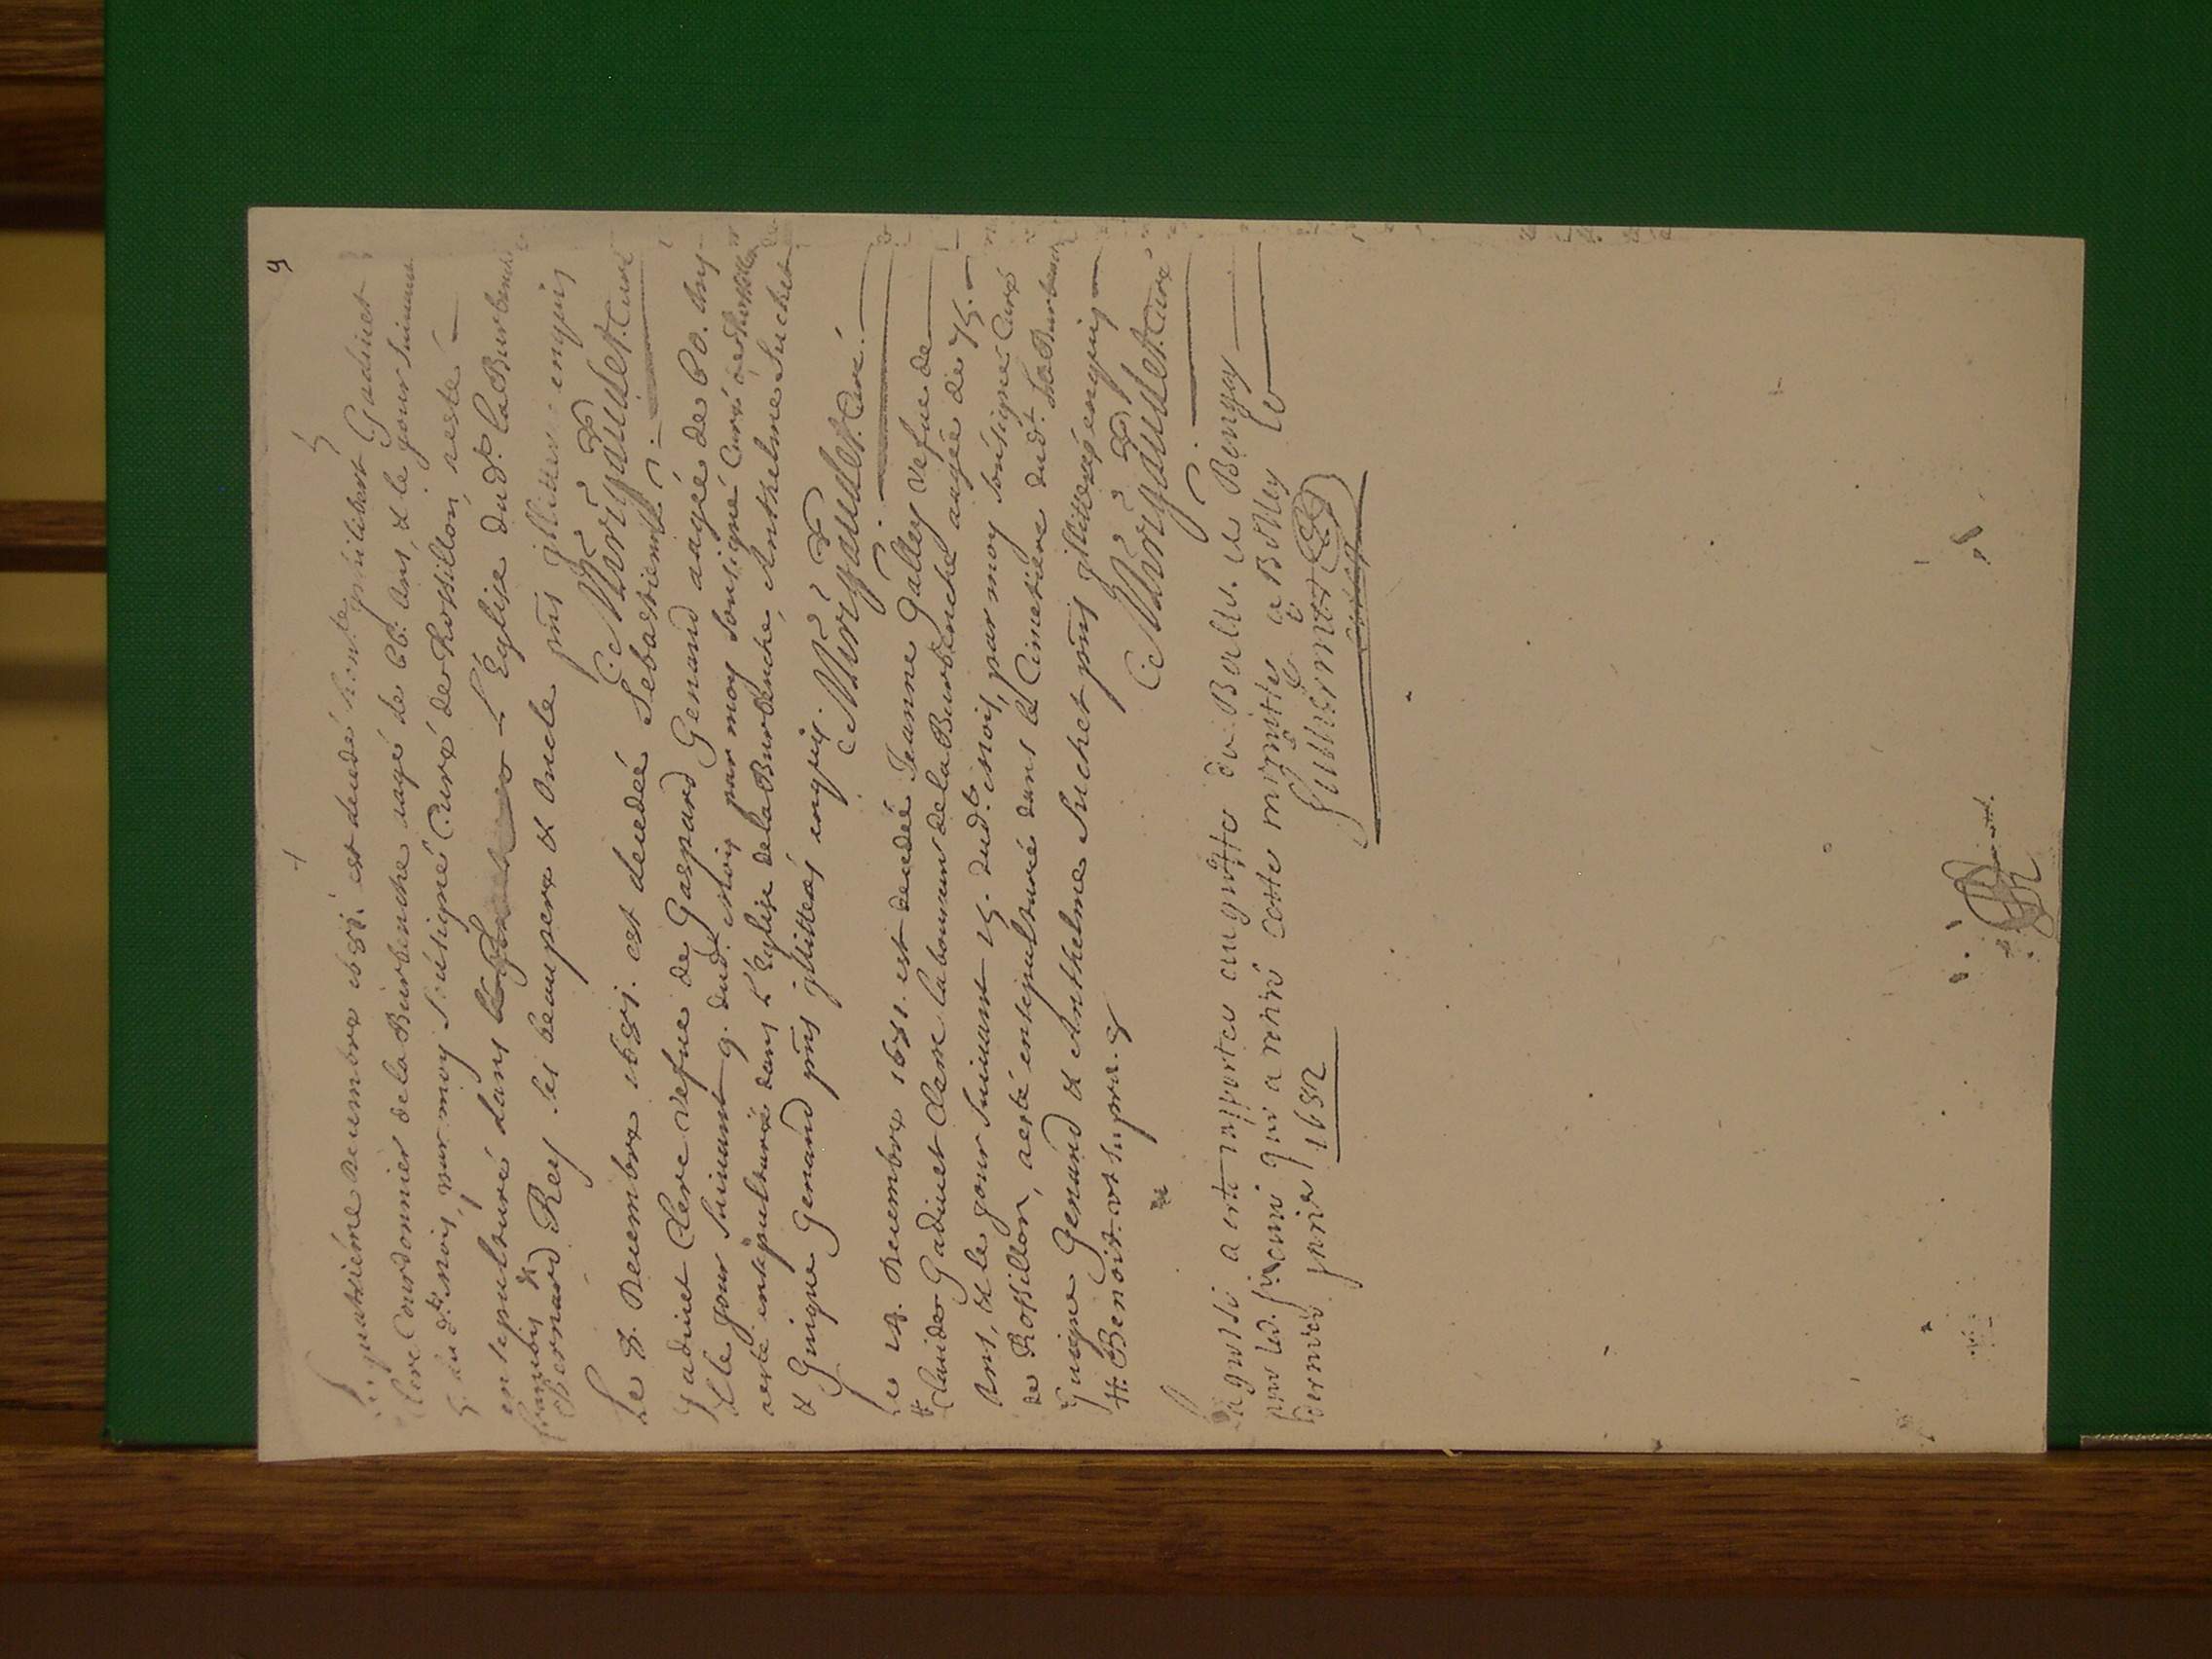 9
quatriéme Decembre 1681. est decedé honte philibert Gadinet
Clerc Courdonnier de la Burbenche aagé de 66. Ans, & le jour suiuant
5. du dt. mois, par moy soubsigné Curé de Rossillon, aesté
ensepulturé dans l'Eglise dudt. la Burbenche
francoys &
Bernard Rey ses beaupere & oncle pnts illitteres enquis
C. Murigaudet. Curé
Le 8. Decembre 1681. est decedeé Sebastienne
Gadinet Clerc vefue de Gaspard Genand aagée de 60. Ans
& le jour suiuant 9. dudt. Mois par moy soussigné Curé de Rossillon
aesté ensepulturée dans l'Eglise de la Burbenche, Anthelme Suchet
& Guigue Genand pnts illitterés enquis.
C. Murigaudet. Curé.
Le 14. Decembre 1681. est decedeé Jeanne Galley vefue de
# Claude Gadinet Clerc laboureur de la Burbenche aagée de 75.
Ans, & le jour suiuant 15. dudt. Mois, par moy soussigné Curé
de Rossillon, aesté ensepulturée dans le Cimetiere dudt. la Burbenche
Guigue Genand & Anthelme Suchet pnts illitterés enquis
#. Benoit. vt supra.
C. Murigaudet. Curé
a este rapportee au greffe du Balle. de Bugey
par led. qui a retiré cette minutte a Belley le
dernier 1682
Guillerme